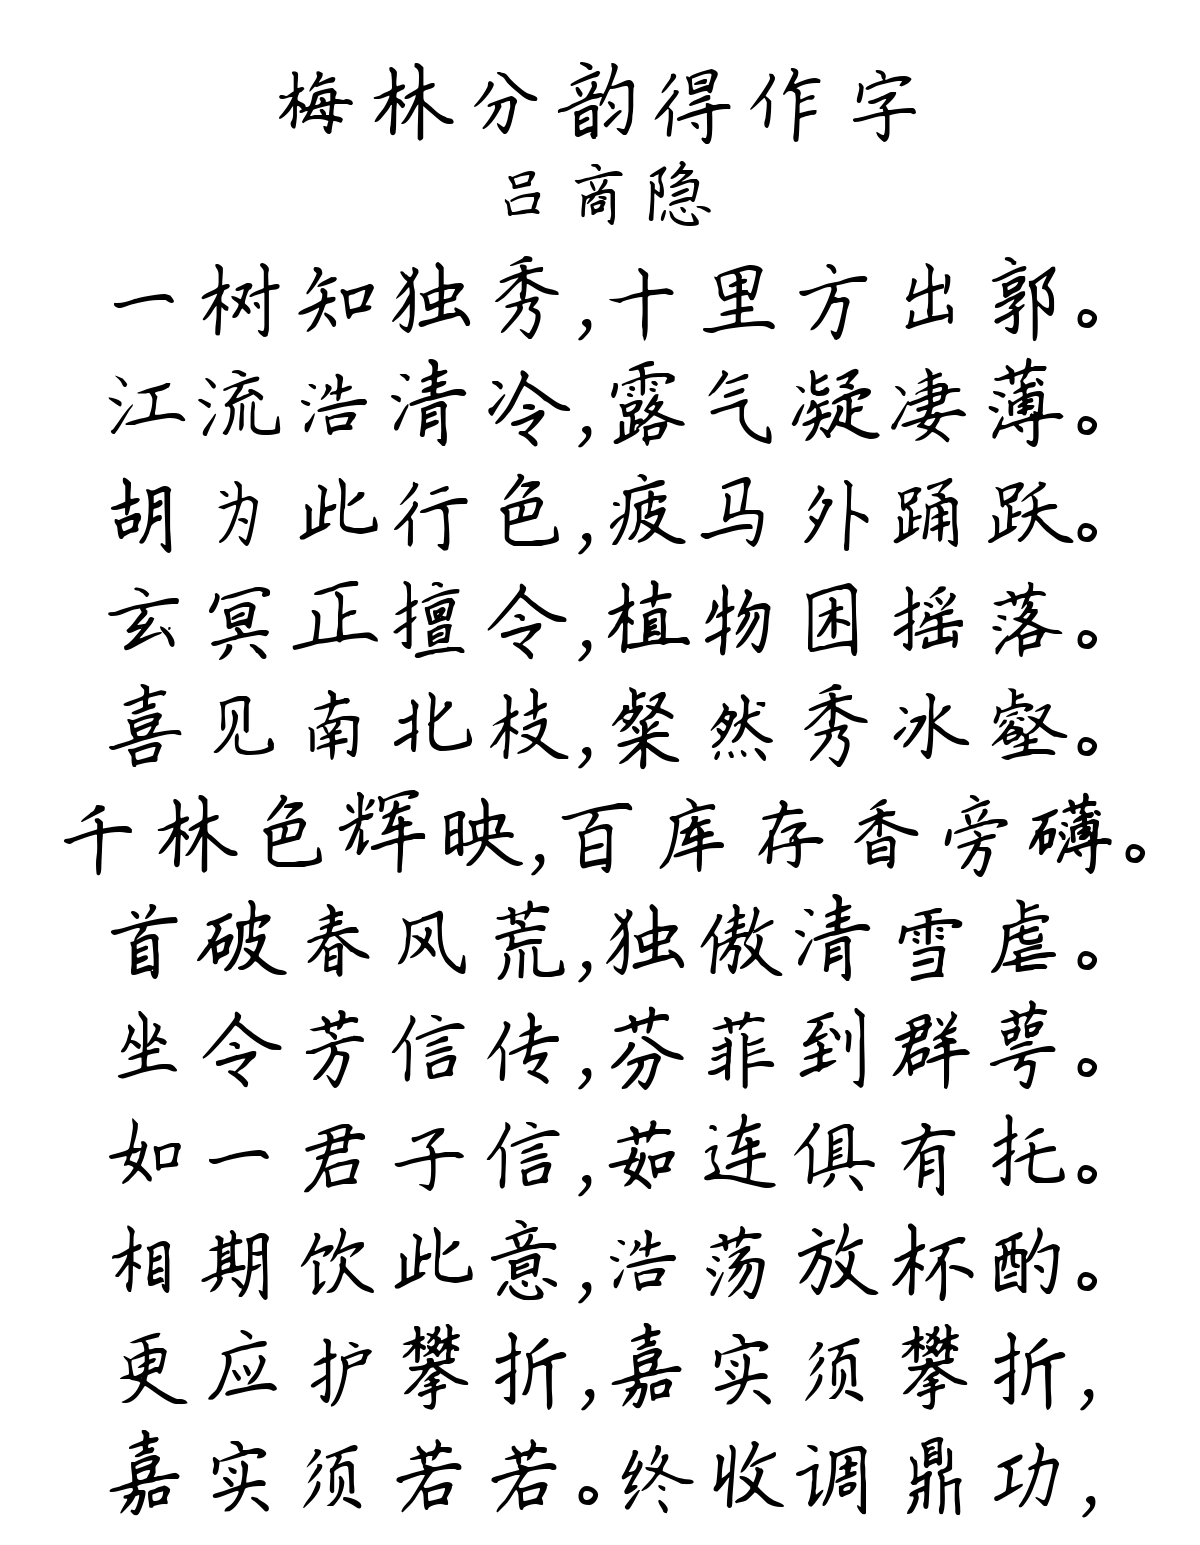 梅林分韵得作字
吕商隐
一树知独秀,十里方出郭。
江流浩清冷,露气凝凄薄。
胡为此行色,疲马外踊跃。
玄冥正擅令,植物困摇落。
喜见南北枝,粲然秀冰壑。
千林色辉映,百库存香旁礴。
首破春风荒,独傲清雪虐。
坐令芳信传,芬菲到群萼。
如一君子信,茹连俱有托。
相期饮此意,浩荡放杯酌。
更应护攀折,嘉实须攀折,
嘉实须若若。终收调鼎功,